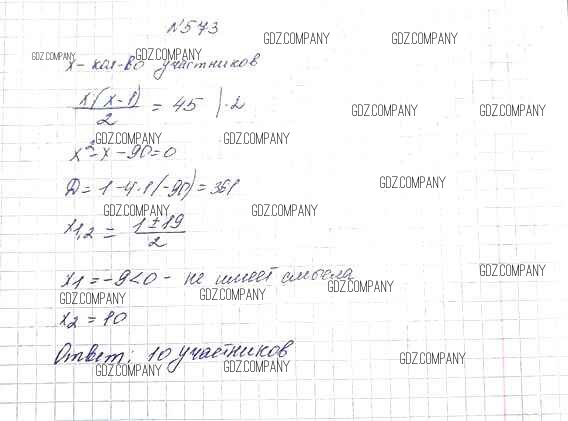 №573
GDZ.COMPANY GDZ.COMPANY
GDZ.COMPANY GDZ.COMPANY
x - кол-во участников
x(x-1)/2 = 45 | ·2
GDZ.COMPANY GDZ.COMPANY
GDZ.COMPANY GDZ.COMPANY
x² - x - 90 = 0
D = 1 - 4·1(-90) = 361
GDZ.COMPANY
GDZ.COMPANY GDZ.COMPANY
x1,2 = 1±19/2
x1 = -9 < 0 - не имеет смысла
GDZ.COMPANY
GDZ.COMPANY GDZ.COMPANY GDZ.COMPANY
x2 = 10
Ответ: 10 участников
GDZ.COMPANY GDZ.COMPANY GDZ.COMPANY